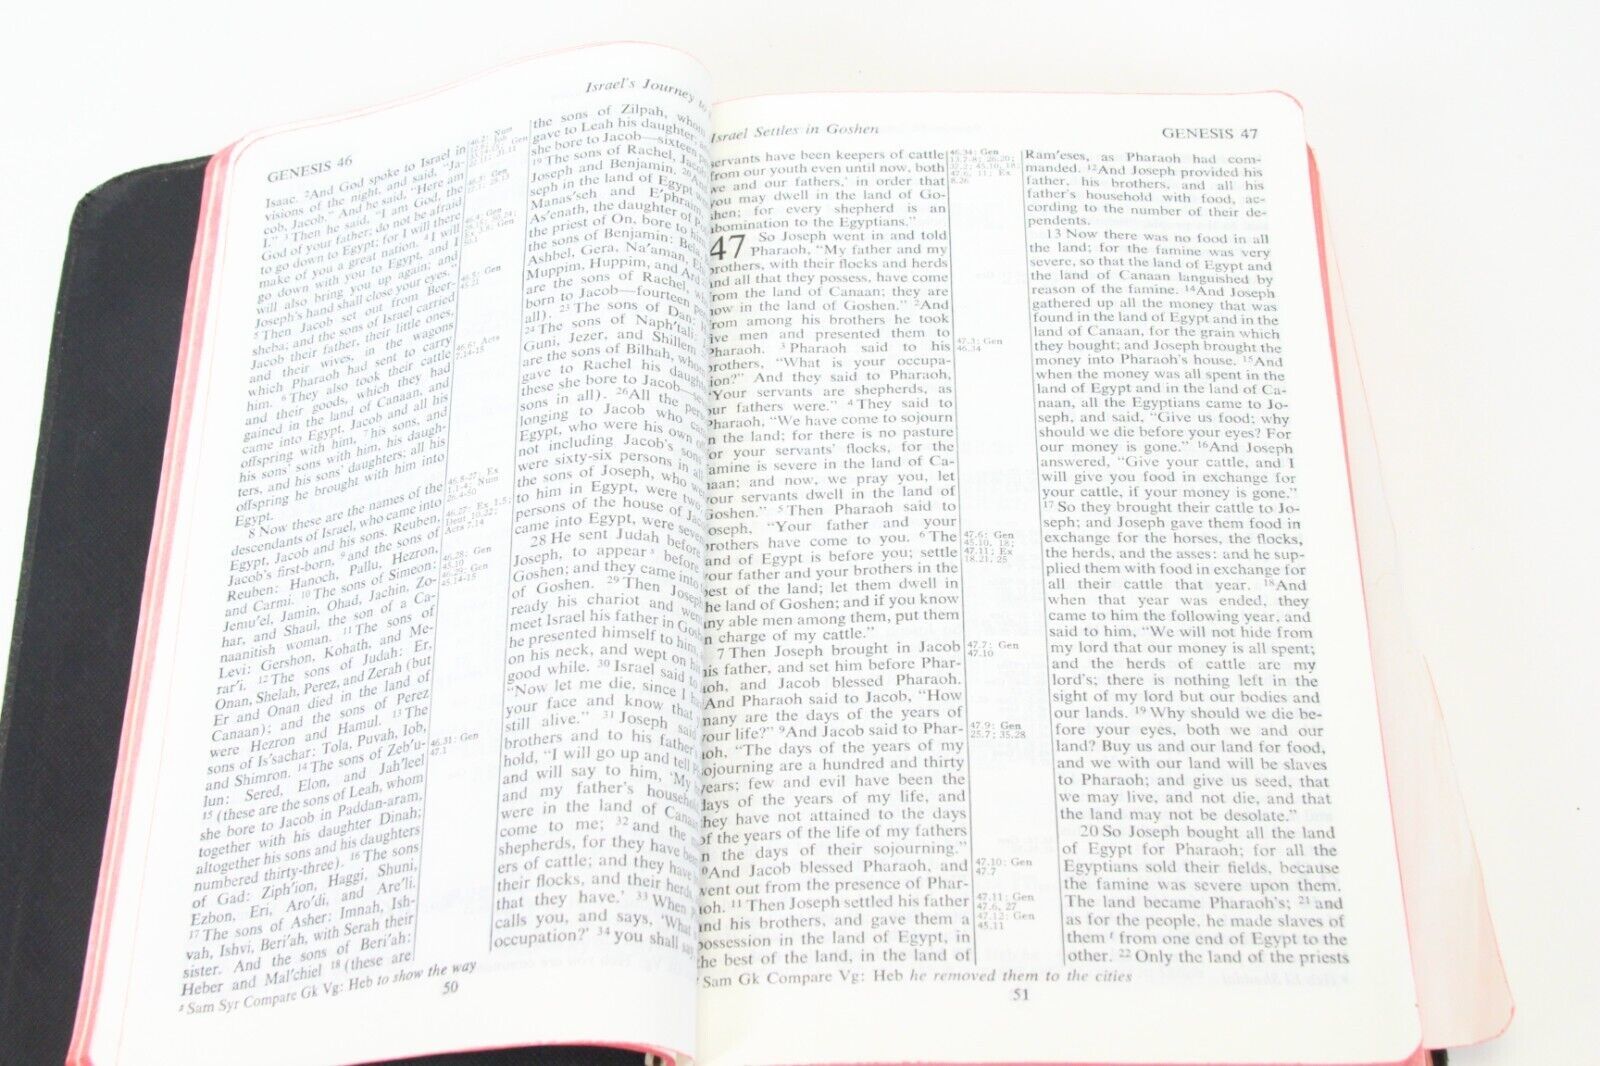 GENESIS 46
Israel's Journey to
Isaac. ²And God spoke to Israel in
visions of the night, and said, "Ja-
cob, Jacob." And he said, "Here am
I." ³Then he said, "I am God, the
God of your father; do not be afraid
to go down to Egypt; for I will there
make of you a great nation. ⁴I will
go down with you to Egypt, and I
will also bring you up again; and
Joseph's hand shall close your eyes."
⁵Then Jacob set out from Beer-
sheba; and the sons of Israel carried
Jacob their father, their little ones,
and their wives, in the wagons
which Pharaoh had sent to carry
him. ⁶They also took their cattle
and their goods, which they had
gained in the land of Canaan, and
came into Egypt, Jacob and all his
offspring with him, ⁷his sons, and
his sons' sons with him, his daugh-
ters, and his sons' daughters; all his
offspring he brought with him into
Egypt.
8 Now these are the names of the
descendants of Israel, who came into
Egypt, Jacob and his sons. Reuben,
Jacob's first-born, ⁹and the sons of
Reuben: Hanoch, Pallu, Hezron,
and Carmi. ¹⁰The sons of Simeon:
Jemu′el, Jamin, Ohad, Jachin, Zo-
har, and Shaul, the son of a Ca-
naanitish woman. ¹¹The sons of
Levi: Gershon, Kohath, and Me-
rar′i. ¹²The sons of Judah: Er,
Onan, Shelah, Perez, and Zerah (but
Er and Onan died in the land of
Canaan); and the sons of Perez
were Hezron and Hamul. ¹³The
sons of Is′sachar: Tola, Puvah, Iob,
and Shimron. ¹⁴The sons of Zeb′u-
lun: Sered, Elon, and Jah′leel
¹⁵(these are the sons of Leah, whom
she bore to Jacob in Paddan-aram,
together with his daughter Dinah;
altogether his sons and his daughters
numbered thirty-three). ¹⁶The sons
of Gad: Ziph′ion, Haggi, Shuni,
Ezbon, Eri, Aro′di, and Are′li.
¹⁷The sons of Asher: Imnah, Ish-
vah, Ishvi, Beri′ah, with Serah their
sister. And the sons of Beri′ah:
Heber and Mal′chiel ¹⁸(these are
46.5: Gen
45.21
46.6: Acts
7.14-15
46.8-27: Ex
1.1-4; Num
26.4-50
46.27: Ex 1.5;
Deut 10.22;
Acts 7.14
46.28: Gen
45.10
46.29: Gen
45.14-15
46.31: Gen
47.1
the sons of Zilpah, whom
gave to Leah his daughter
she bore to Jacob—sixteen
¹⁹The sons of Rachel,
Joseph and Benjamin. ²⁰And
seph in the land of Egypt
Manas′seh and E′phraim,
As′enath, the daughter of
the priest of On, bore to him.
the sons of Benjamin: Bela,
Ashbel, Gera, Na′aman,
Muppim, Huppim, and Ard
are the sons of Rachel,
born to Jacob—fourteen
all). ²³The sons of Dan:
²⁴The sons of Naph′tali:
Guni, Jezer, and Shillem
are the sons of Bilhah, whom
gave to Rachel his daughter
these she bore to Jacob—
sons in all). ²⁶All the
longing to Jacob who
Egypt, who were his own
not including Jacob's sons'
were sixty-six persons in all
the sons of Joseph, who
to him in Egypt, were two;
persons of the house of
came into Egypt, were
28 He sent Judah before
Joseph, to appear ˢ before
Goshen; and they came into
of Goshen. ²⁹Then Joseph
ready his chariot and went
meet Israel his father in
he presented himself to him,
on his neck, and wept on
good while. ³⁰Israel said
"Now let me die, since I
your face and know that
still alive." ³¹Joseph said
brothers and to his father's
hold, "I will go up and tell
and will say to him, 'My
and my father's household
were in the land of Canaan
come to me; ³²and the
shepherds, for they have been
ers of cattle; and they have
their flocks, and their herds,
that they have.' ³³When
calls you, and says, 'What
occupation?' ³⁴you shall say,
ˢ Sam Syr Compare Gk Vg: Heb to show the way
50
Israel Settles in Goshen
GENESIS 47
servants have been keepers of cattle
from our youth even until now, both
we and our fathers,' in order that
you may dwell in the land of Go-
shen; for every shepherd is an
abomination to the Egyptians."
47 So Joseph went in and told
Pharaoh, "My father and my
brothers, with their flocks and herds
and all that they possess, have come
from the land of Canaan; they are
now in the land of Goshen." ²And
from among his brothers he took
five men and presented them to
Pharaoh. ³Pharaoh said to his
brothers, "What is your occupa-
tion?" And they said to Pharaoh,
"Your servants are shepherds, as
our fathers were." ⁴They said to
Pharaoh, "We have come to sojourn
in the land; for there is no pasture
for your servants' flocks, for the
famine is severe in the land of Ca-
naan; and now, we pray you, let
your servants dwell in the land of
Goshen." ⁵Then Pharaoh said to
Joseph, "Your father and your
brothers have come to you. ⁶The
land of Egypt is before you; settle
your father and your brothers in the
best of the land; let them dwell in
the land of Goshen; and if you know
any able men among them, put them
in charge of my cattle."
7 Then Joseph brought in Jacob
his father, and set him before Phar-
aoh, and Jacob blessed Pharaoh.
⁸And Pharaoh said to Jacob, "How
many are the days of the years of
your life?" ⁹And Jacob said to Phar-
aoh, "The days of the years of my
sojourning are a hundred and thirty
years; few and evil have been the
days of the years of my life, and
they have not attained to the days
of the years of the life of my fathers
in the days of their sojourning."
¹⁰And Jacob blessed Pharaoh, and
went out from the presence of Phar-
aoh. ¹¹Then Joseph settled his father
and his brothers, and gave them a
possession in the land of Egypt, in
the best of the land, in the land of
46.34: Gen
13.7-8; 26.20;
37.2; 45.10, 18;
47.6, 11; Ex
8.26
47.3: Gen
46.34
47.6: Gen
45.10, 18;
47.11; Ex
18.21, 25
47.7: Gen
47.10
47.9: Gen
25.7; 35.28
47.10: Gen
47.7
47.11: Gen
47.6, 27
47.12: Gen
45.11
Ram′eses, as Pharaoh had com-
manded. ¹²And Joseph provided his
father, his brothers, and all his
father's household with food, ac-
cording to the number of their de-
pendents.
13 Now there was no food in all
the land; for the famine was very
severe, so that the land of Egypt and
the land of Canaan languished by
reason of the famine. ¹⁴And Joseph
gathered up all the money that was
found in the land of Egypt and in the
land of Canaan, for the grain which
they bought; and Joseph brought the
money into Pharaoh's house. ¹⁵And
when the money was all spent in the
land of Egypt and in the land of Ca-
naan, all the Egyptians came to Jo-
seph, and said, "Give us food; why
should we die before your eyes? For
our money is gone." ¹⁶And Joseph
answered, "Give your cattle, and I
will give you food in exchange for
your cattle, if your money is gone."
¹⁷So they brought their cattle to Jo-
seph; and Joseph gave them food in
exchange for the horses, the flocks,
the herds, and the asses: and he sup-
plied them with food in exchange for
all their cattle that year. ¹⁸And
when that year was ended, they
came to him the following year, and
said to him, "We will not hide from
my lord that our money is all spent;
and the herds of cattle are my
lord's; there is nothing left in the
sight of my lord but our bodies and
our lands. ¹⁹Why should we die be-
fore your eyes, both we and our
land? Buy us and our land for food,
and we with our land will be slaves
to Pharaoh; and give us seed, that
we may live, and not die, and that
the land may not be desolate."
20 So Joseph bought all the land
of Egypt for Pharaoh; for all the
Egyptians sold their fields, because
the famine was severe upon them.
The land became Pharaoh's; ²¹and
as for the people, he made slaves of
them ᵗ from one end of Egypt to the
other. ²²Only the land of the priests
ᵗ Sam Gk Compare Vg: Heb he removed them to the cities
51